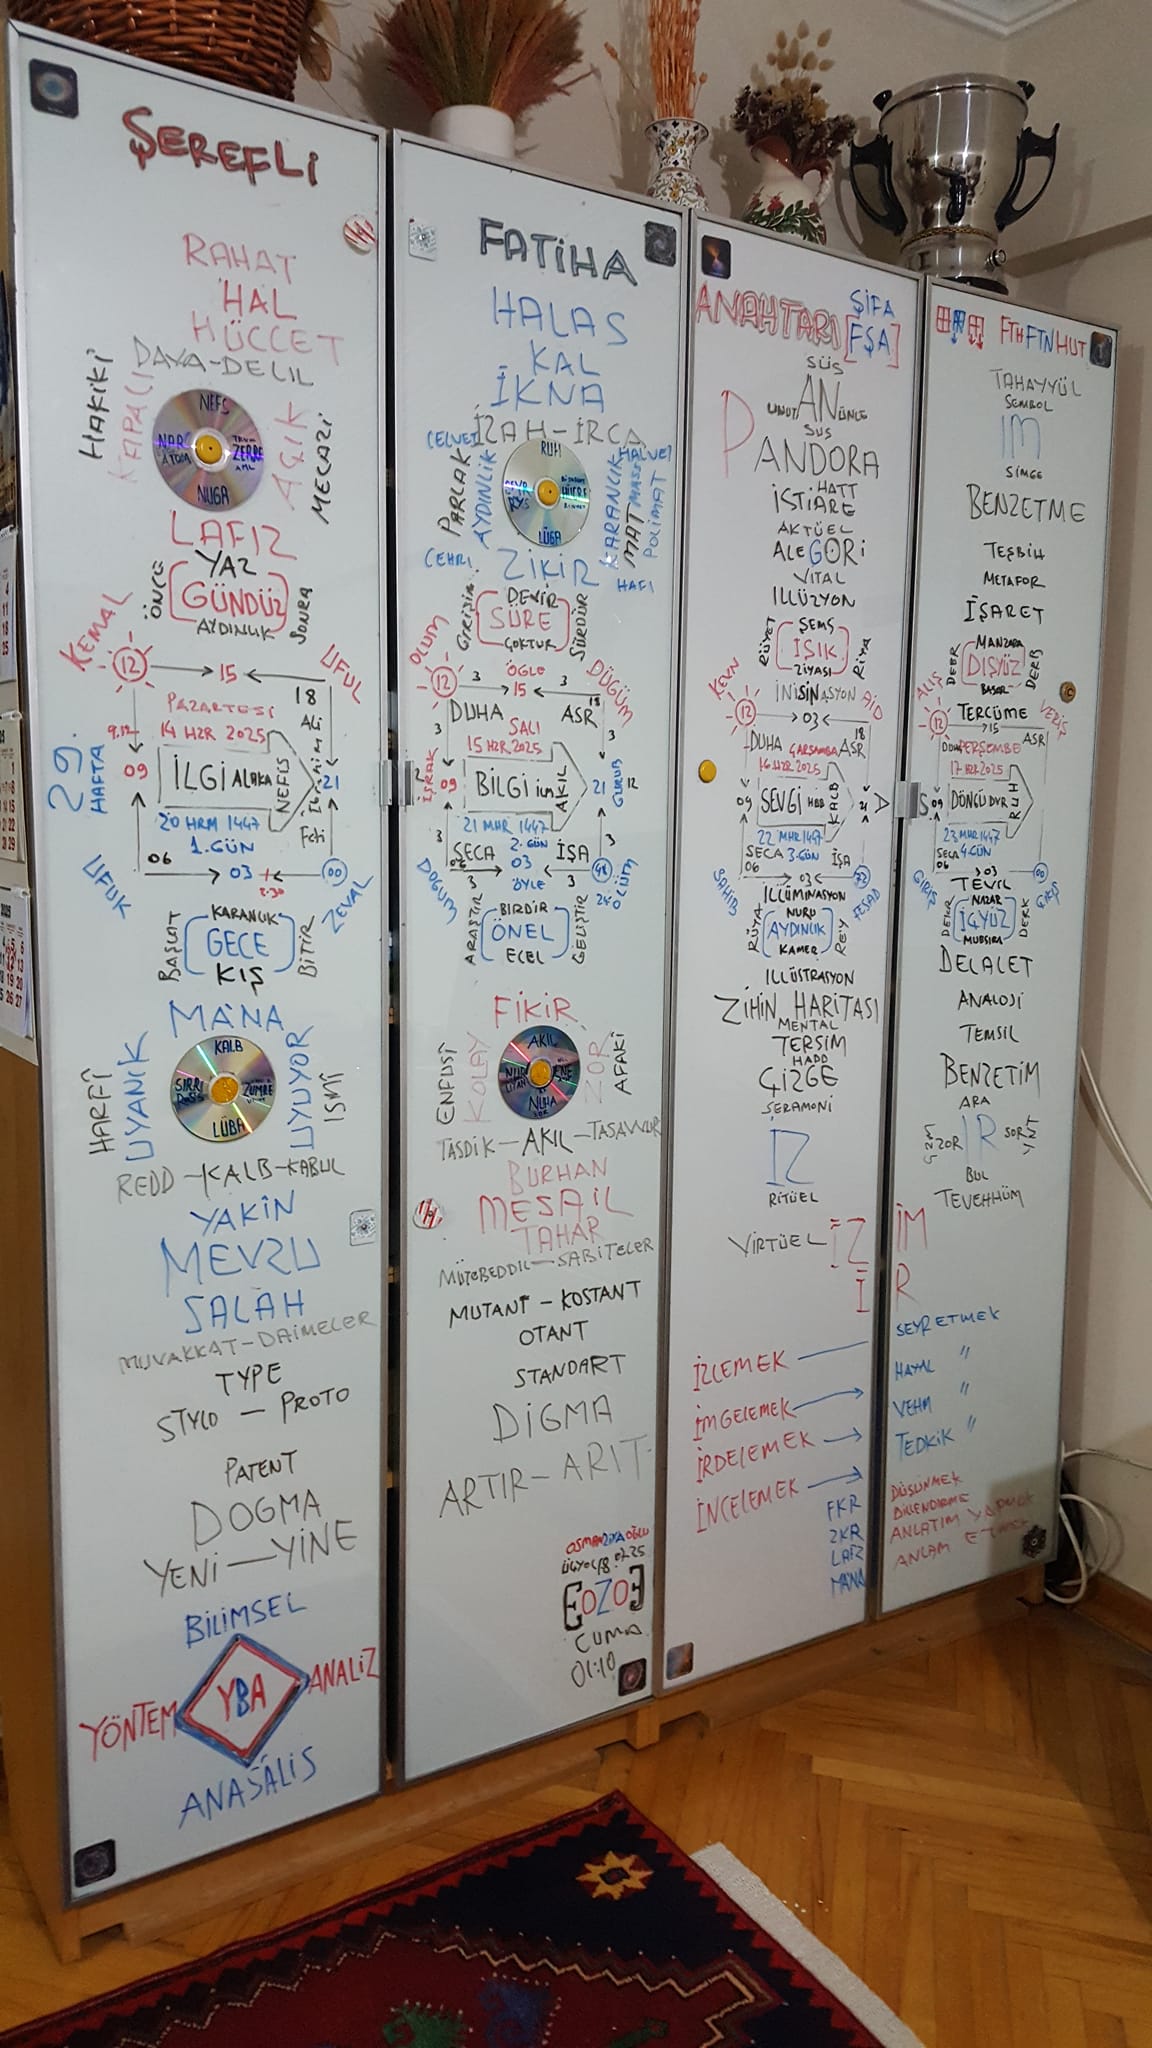 ŞEREFLİ
RAHAT
HAL
HÜCCET
DAYA-DELİL
HAKİKİ
KAPALI
AÇIK
MECAZİ
NEFS
NUGA
LAFIZ
YAZ
ÖNCE
GÜNDÜZ
SONRA
AYDINLIK
KEMAL
UFUL
12
15
18
PAZARTESİ
14 HZR 2025
29.
HAFTA
09
İLGİ ALAKA
NEFİS
21
20 HRM 1447
1.GÜN
06
03
00
UFUK
ZEVAL
KARANLIK
BAŞLAT
GECE
BİTİR
KIŞ
MÂNA
HARFÎ
UYANIK
UYUYOR
İSMÎ
KALB
SIRRI
ZÜMRE
LÜBA
REDD-KALB-KABUL
YAKÎN
MEVZU
SALÂH
MUVAKKAT-DAİMELER
TYPE
STYLO - PROTO
PATENT
DOGMA
YENİ-YİNE
BİLİMSEL
YÖNTEM
YBA
ANALİZ
ANASÂLİS
FATİHA
HALAS
KAL
İKNA
İZAH-İRCA
CELVET
HALVET
PARLAK
AYDINLIK
KARANLIK
MAT
POLİMAT
RUH
LÜGA
CEHRİ
ZİKİR
HAFİ
DEVİR
GİRİŞİM
SÜRE
SÜRDÜR
ÇOKTUR
OLUM
DÜĞÜM
ÖĞLE
12
3
15
3
18
DUHA
ASR
SALI
15 HZR 2025
İŞRAK
09
BİLGİ ilim
AKIL
21
GURUB
12
21 MHR 1447
SECA
2. GÜN
İŞA
03
ÖYLE
DOĞUM
ÖLÜM
24
BİRDİR
ARAŞTIR
ÖNEL
GELİŞTİR
ECEL
FİKİR
ENFUSÎ
KOLAY
ZOR
AFAKİ
AKIL
NUHA
TASDİK-AKIL-TASAVVUR
BURHAN
MESAİL
TAHAR
MÜTEBEDDİL-SABİTELER
MUTANT - KOSTANT
OTANT
STANDART
DİGMA
ARTIR-ARIT
OSMANZİYAOĞLU
EOZOE
CUMA
01:10
ANAHTARI
ŞİFA
[FŞA]
SÜS
UNUT AN ÜNLE
SUS
PANDORA
HATT
İSTİARE
AKTÜEL
ALEGORİ
VİTAL
İLLÜZYON
ŞEMS
RÜYET
IŞIK
RİYA
ZİYASI
İNİSİNASYON
KEVN
12
03
18
DUHA
ÇARŞAMBA
ASR
16 HZR 2025
09
SEVGİ
KALB
21
22 MHR 1447
SECA
3.GÜN
İŞA
06
03
72
SAHİB
FESAD
İLLÜMİNASYON
NURU
RÜYA
AYDINLIK
REY
KAMER
İLLÜSTRASYON
ZİHİN HARİTASI
MENTAL
TERSİM
HADD
ÇİZGE
SERAMONİ
İZ
RİTÜEL
VİRTÜEL İZ
İ
İZLEMEK
İMGELEMEK
İRDELEMEK
İNCELEMEK
FKR
ZKR
LAFZ
MÂNA
FTHFTNHUT
TAHAYYÜL
SEMBOL
İM
SİMGE
BENZETME
TEŞBİH
METAFOR
İŞARET
MANZARA
DIŞYÜZ
BASAR
ALIŞ
VERİŞ
TERCÜME
12
15
ASR
DUHA
PERŞEMBE
17 HZR 2025
09
DÖNGÜ DVR
RUH
23 MHR 1447
SECA 4.GÜN
06
03
00
GİRİŞ
ÇIKIŞ
TEVİL
NAZAR
İÇYÜZ
DERK
DELALET
ANALOJİ
TEMSİL
BENZETİM
ARA
ZOR
IR
SOR
BUL
TEVEHHÜM
İM
R
SEYRETMEK
HAYAL "
VEHM "
TEDKİK "
DÜŞÜNMEK
DİLLENDİRME
ANLATIM YAPMAK
ANLAM